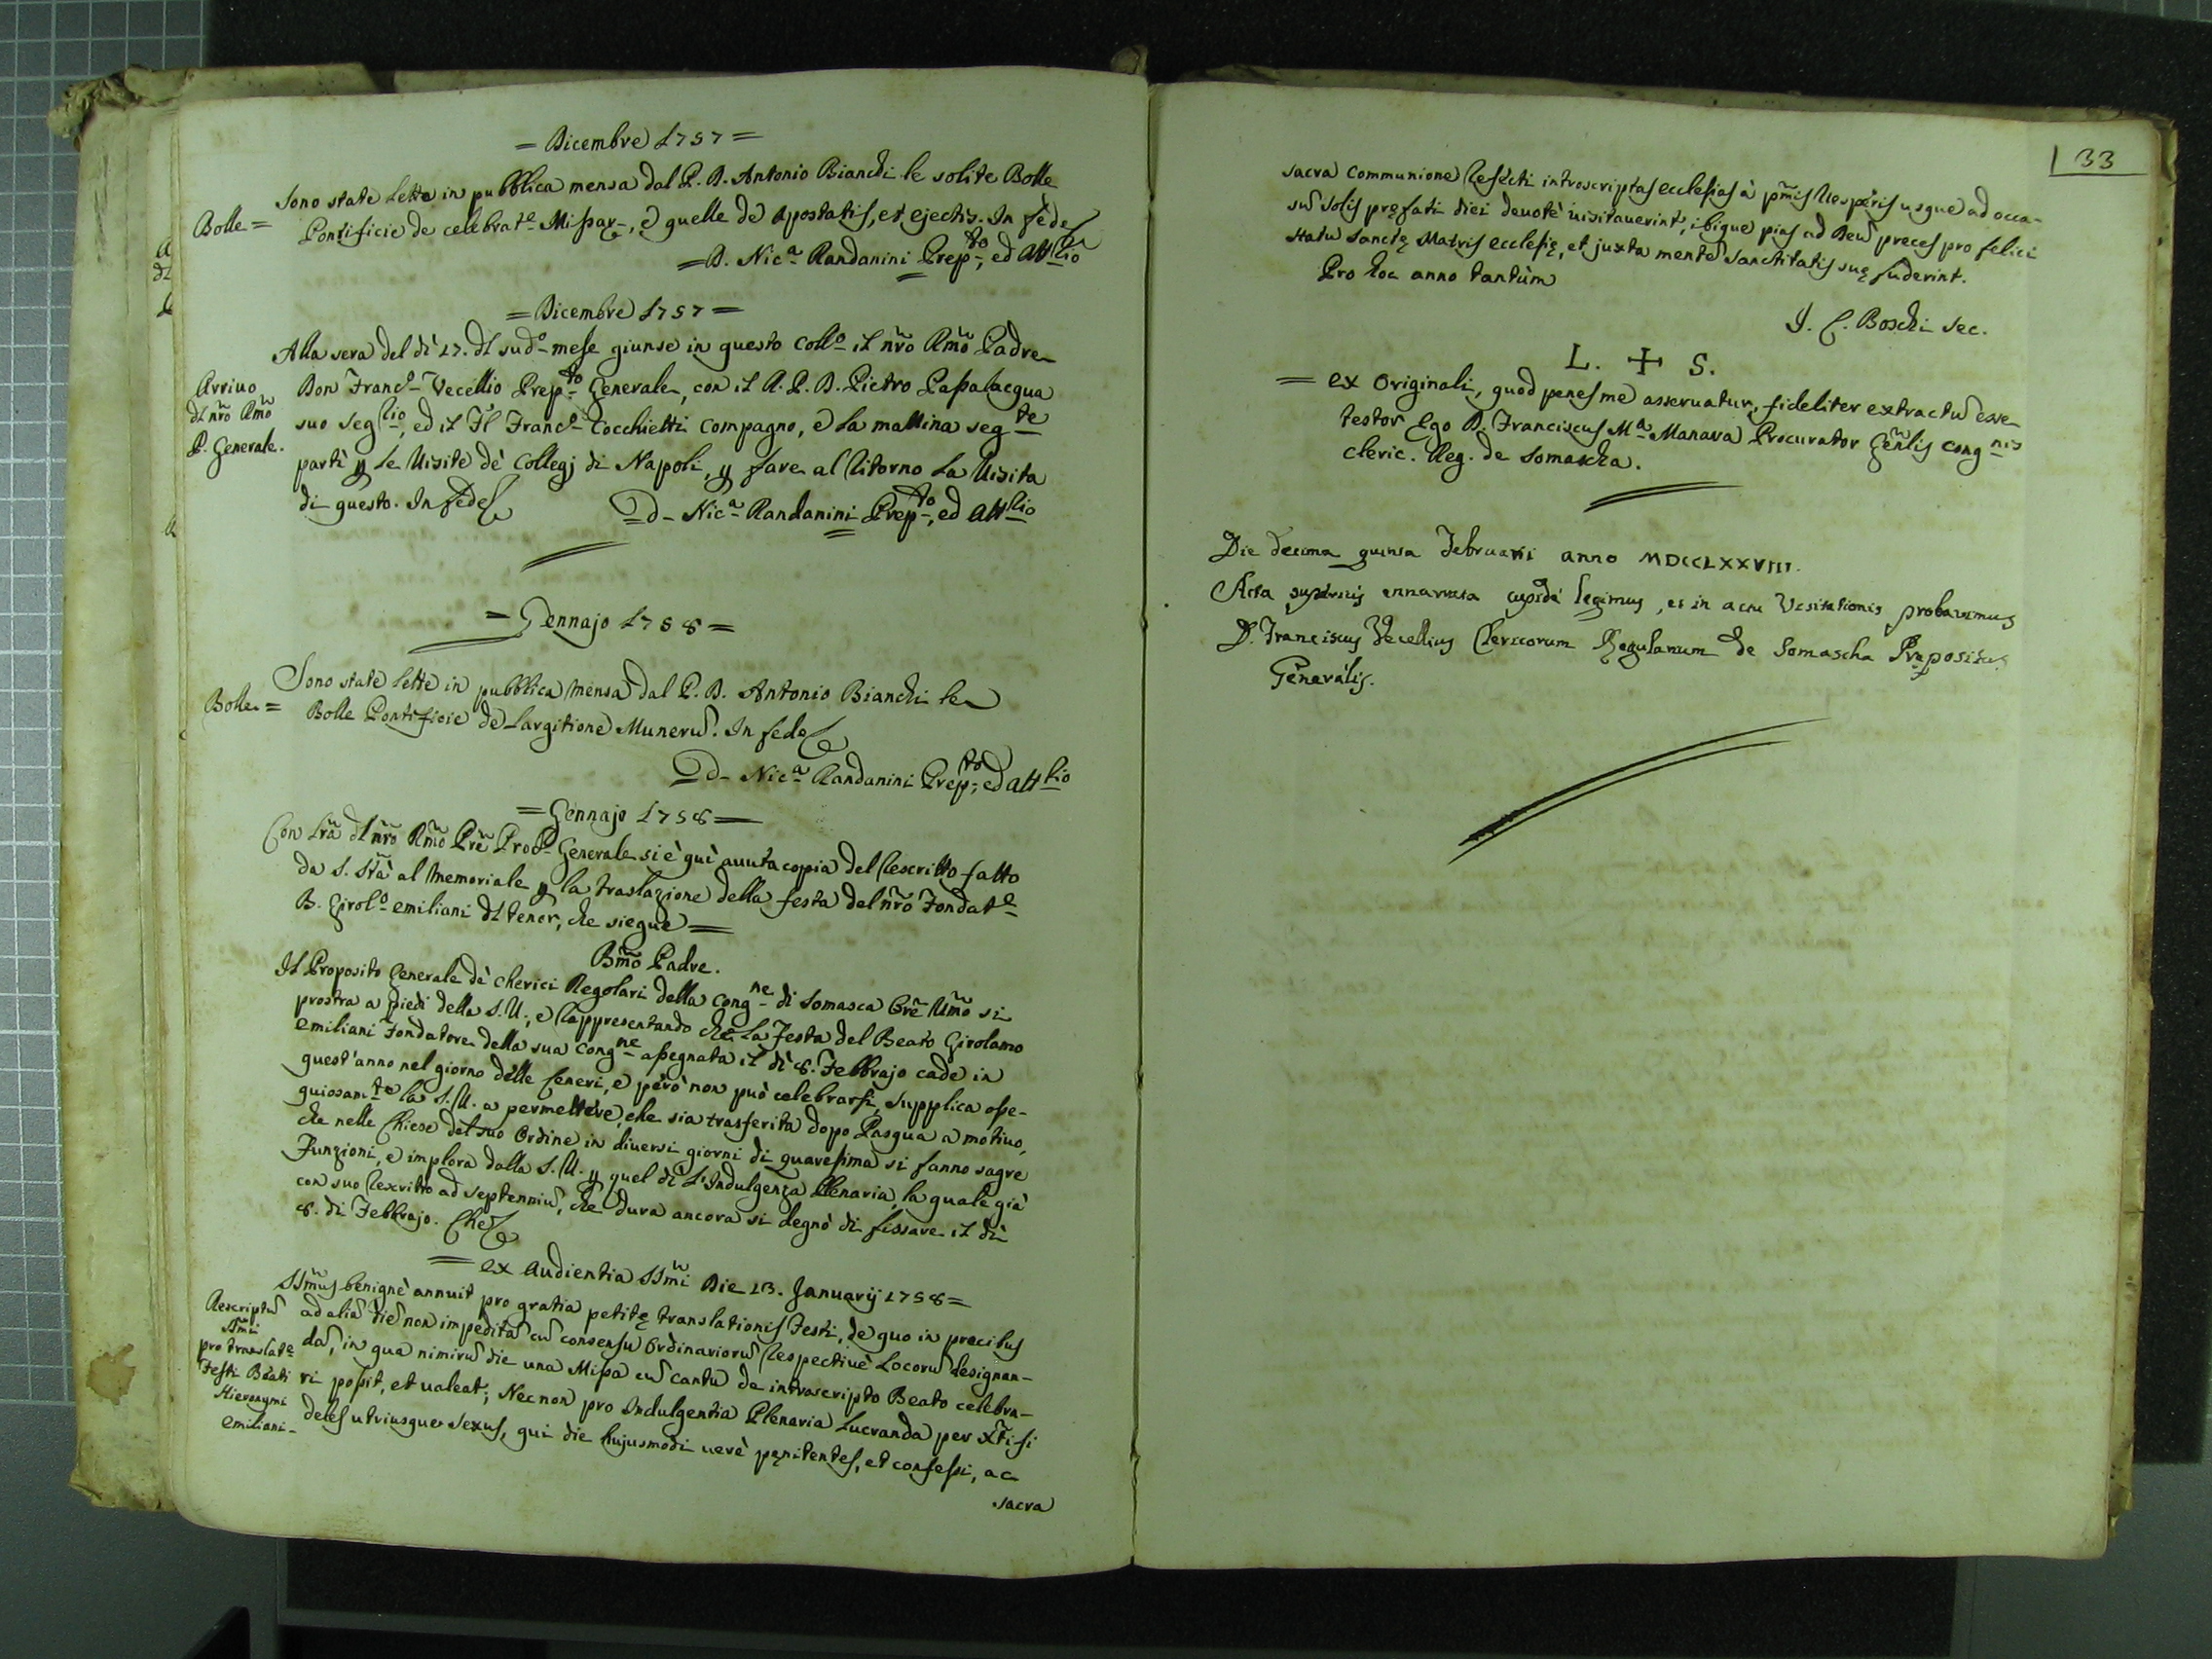 = Dicembre 1757 =
Sono state lette in pubblica mensa dal P. D. Antonio Bianchi le solite Bolle
Bolle = Pontificie de celebrat.e Missar., e quelle de Apostatis, et ejectis. In fede
= D. Nic.a Randanini Prep.to, ed Att.rio
= Dicembre 1757 =
Alla sera del dì 17. dl sud.o mese giunse in questo Coll.o il nr̃o Rm̃o Padre
Arrivo dl nr̃o Rm̃o P. Generale.
Don Franc.o Vecellio Prep.to Generale, con il A. P. D. Pietro Passalacqua
suo Seg.rio, ed il Fl̃ Franc.o Cocchietti compagno, e la mattina seg.te
partì p le Visite de' Collegj di Napoli, p fare al ritorno la Visita
di questo. In fede
D. Nic.a Randanini Prep.to, ed Att.rio
= Gennajo 1758 =
Sono state lette in pubblica mensa dal P. D. Antonio Bianchi le
Bolle = Bolle Pontificie de Largitione Munerũ. In fede
D. Nic.a Randanini Prep.to, ed Att.rio
= Gennajo 1758 =
Con lr̃a dl nr̃o Rm̃o Prẽ Proc.r Generale si è quì avuta copia del Rescritto fatto
da S. Stà al Memoriale p la traslazione della festa del nr̃o Fondat.e
B. Girol.o Emiliani dl tenor, che siegue =
Bm̃o Padre.
Il Proposito Generale de' Cherici Regolari della Cong.ne di Somasca Orẽ Um̃o si
prostra a piedi della S. V., e rappresentando che la Festa del Beato Girolamo
Emiliani Fondatore della sua Cong.ne assegnata il dì 8. Febbrajo cade in
quest'anno nel giorno delle Ceneri, e però non può celebrarsi, supplica osse-
quiosam.te la S. V. a permettere, che sia trasferita dopo Pasqua a motivo,
che nelle Chiese del suo Ordine in diversi giorni di quaresima si fanno sagre
Funzioni, e implora dalla S. V. p quel dì l'Indulgenza Plenaria, la quale già
con suo Rescritto ad septenniũ, che dura ancora si degnò di fissare il dì
8. di Febbrajo. Che
= Ex Audientia SSm̃i Die 13. Januarij 1758 =
Rescriptũ SSm̃i pro translat.e Festi Beati Hieronymi Emiliani
SSm̃us benignè annuit pro gratia petitę translationis Festi, de quo in precibus
ad aliã diẽ non impeditã cũ consensu Ordinariorũ respectivè Locorũ designan-
dã, in qua nimirũ die una Missa cũ cantu de introscripto Beato celebra-
ri possit, et valeat; Nec non pro Indulgentia Plenaria Lucranda per Xti fi
deles utriusque sexus, qui die hujusmodi verè pęnitentes, et confessi, ac
sacra
33
sacra Communione refecti introscriptas ecclesias à pm̃is Vesperis usque ad occa-
sũ solis pręfati diei devotè visitaverint, ibique pias ad Deũ preces pro felici
statu Sanctę Matris Ecclesię, et juxta mentẽ Sanctitatis suę fuderint.
Pro hoc anno tantùm
J. C. Boschi Sec.
L. + S.
= Ex Originali, quod penes me asservatur, fideliter extractũ esse
testor Ego D. Franciscus M.a Manara Procurator Genl̃is Cong.nis
Cleric. Reg. de Somascha.
Die decima quinta Februarii anno MDCCLXXVIII.
Acta superius ennarrata cupidè legimus, et in actu Visitationis probavimus
D. Franciscus Vecellius Clericorum Regularium de Somascha Prępositus
Generalis.